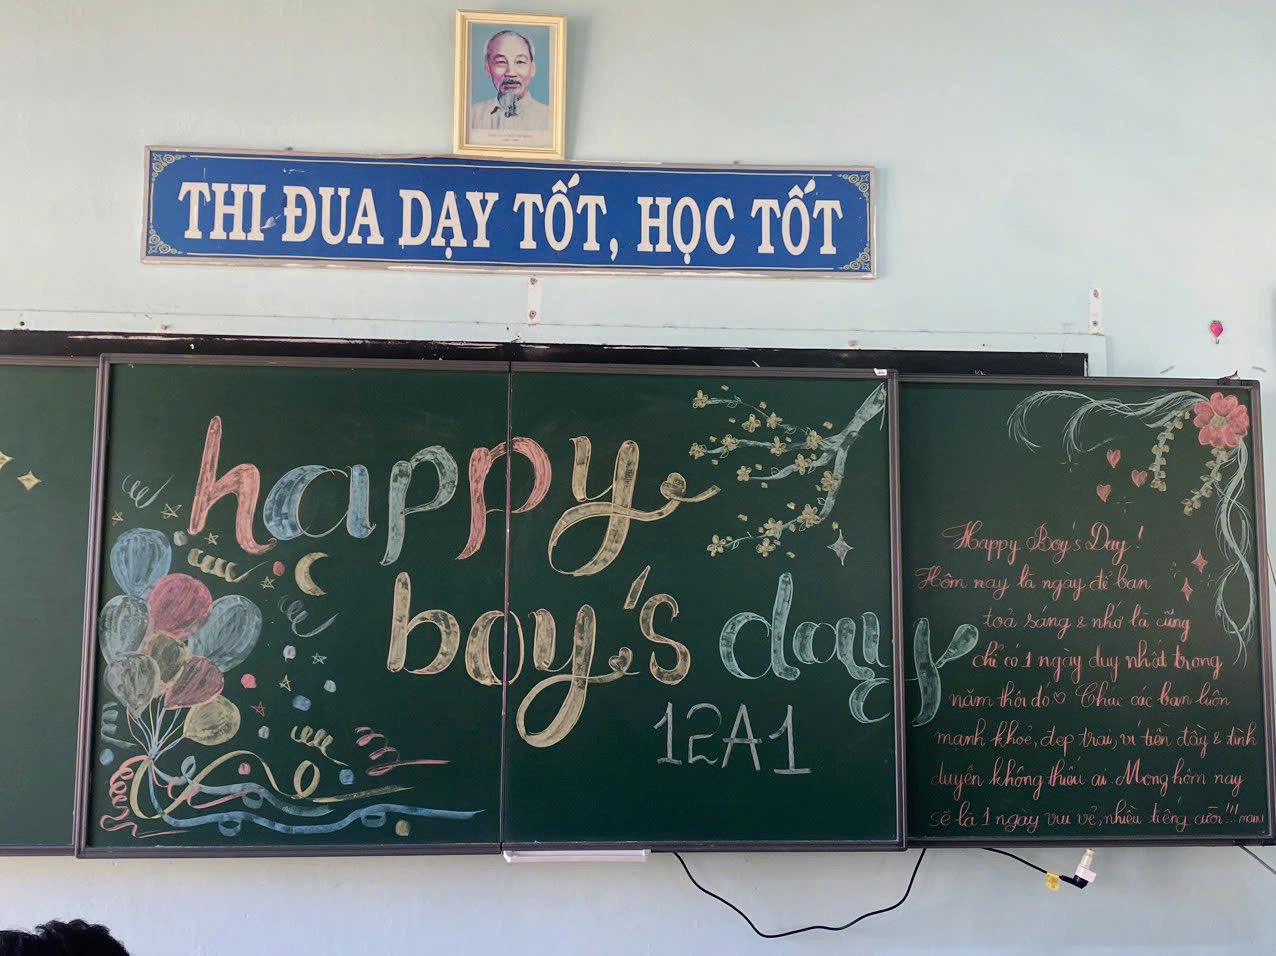 THI ĐUA DẠY TỐT, HỌC TỐT
happy
boy's day
12A1
Happy Boy's Day!
Hôm nay là ngày để bạn
toả sáng & nhớ là cũng
chỉ có 1 ngày duy nhất trong
năm thôi đó♡ Chúc các bạn luôn
mạnh khoẻ, đẹp trai, ví tiền đầy & tình
duyên không thiếu ai. Mong hôm nay
sẽ là 1 ngày vui vẻ, nhiều tiếng cười!!!